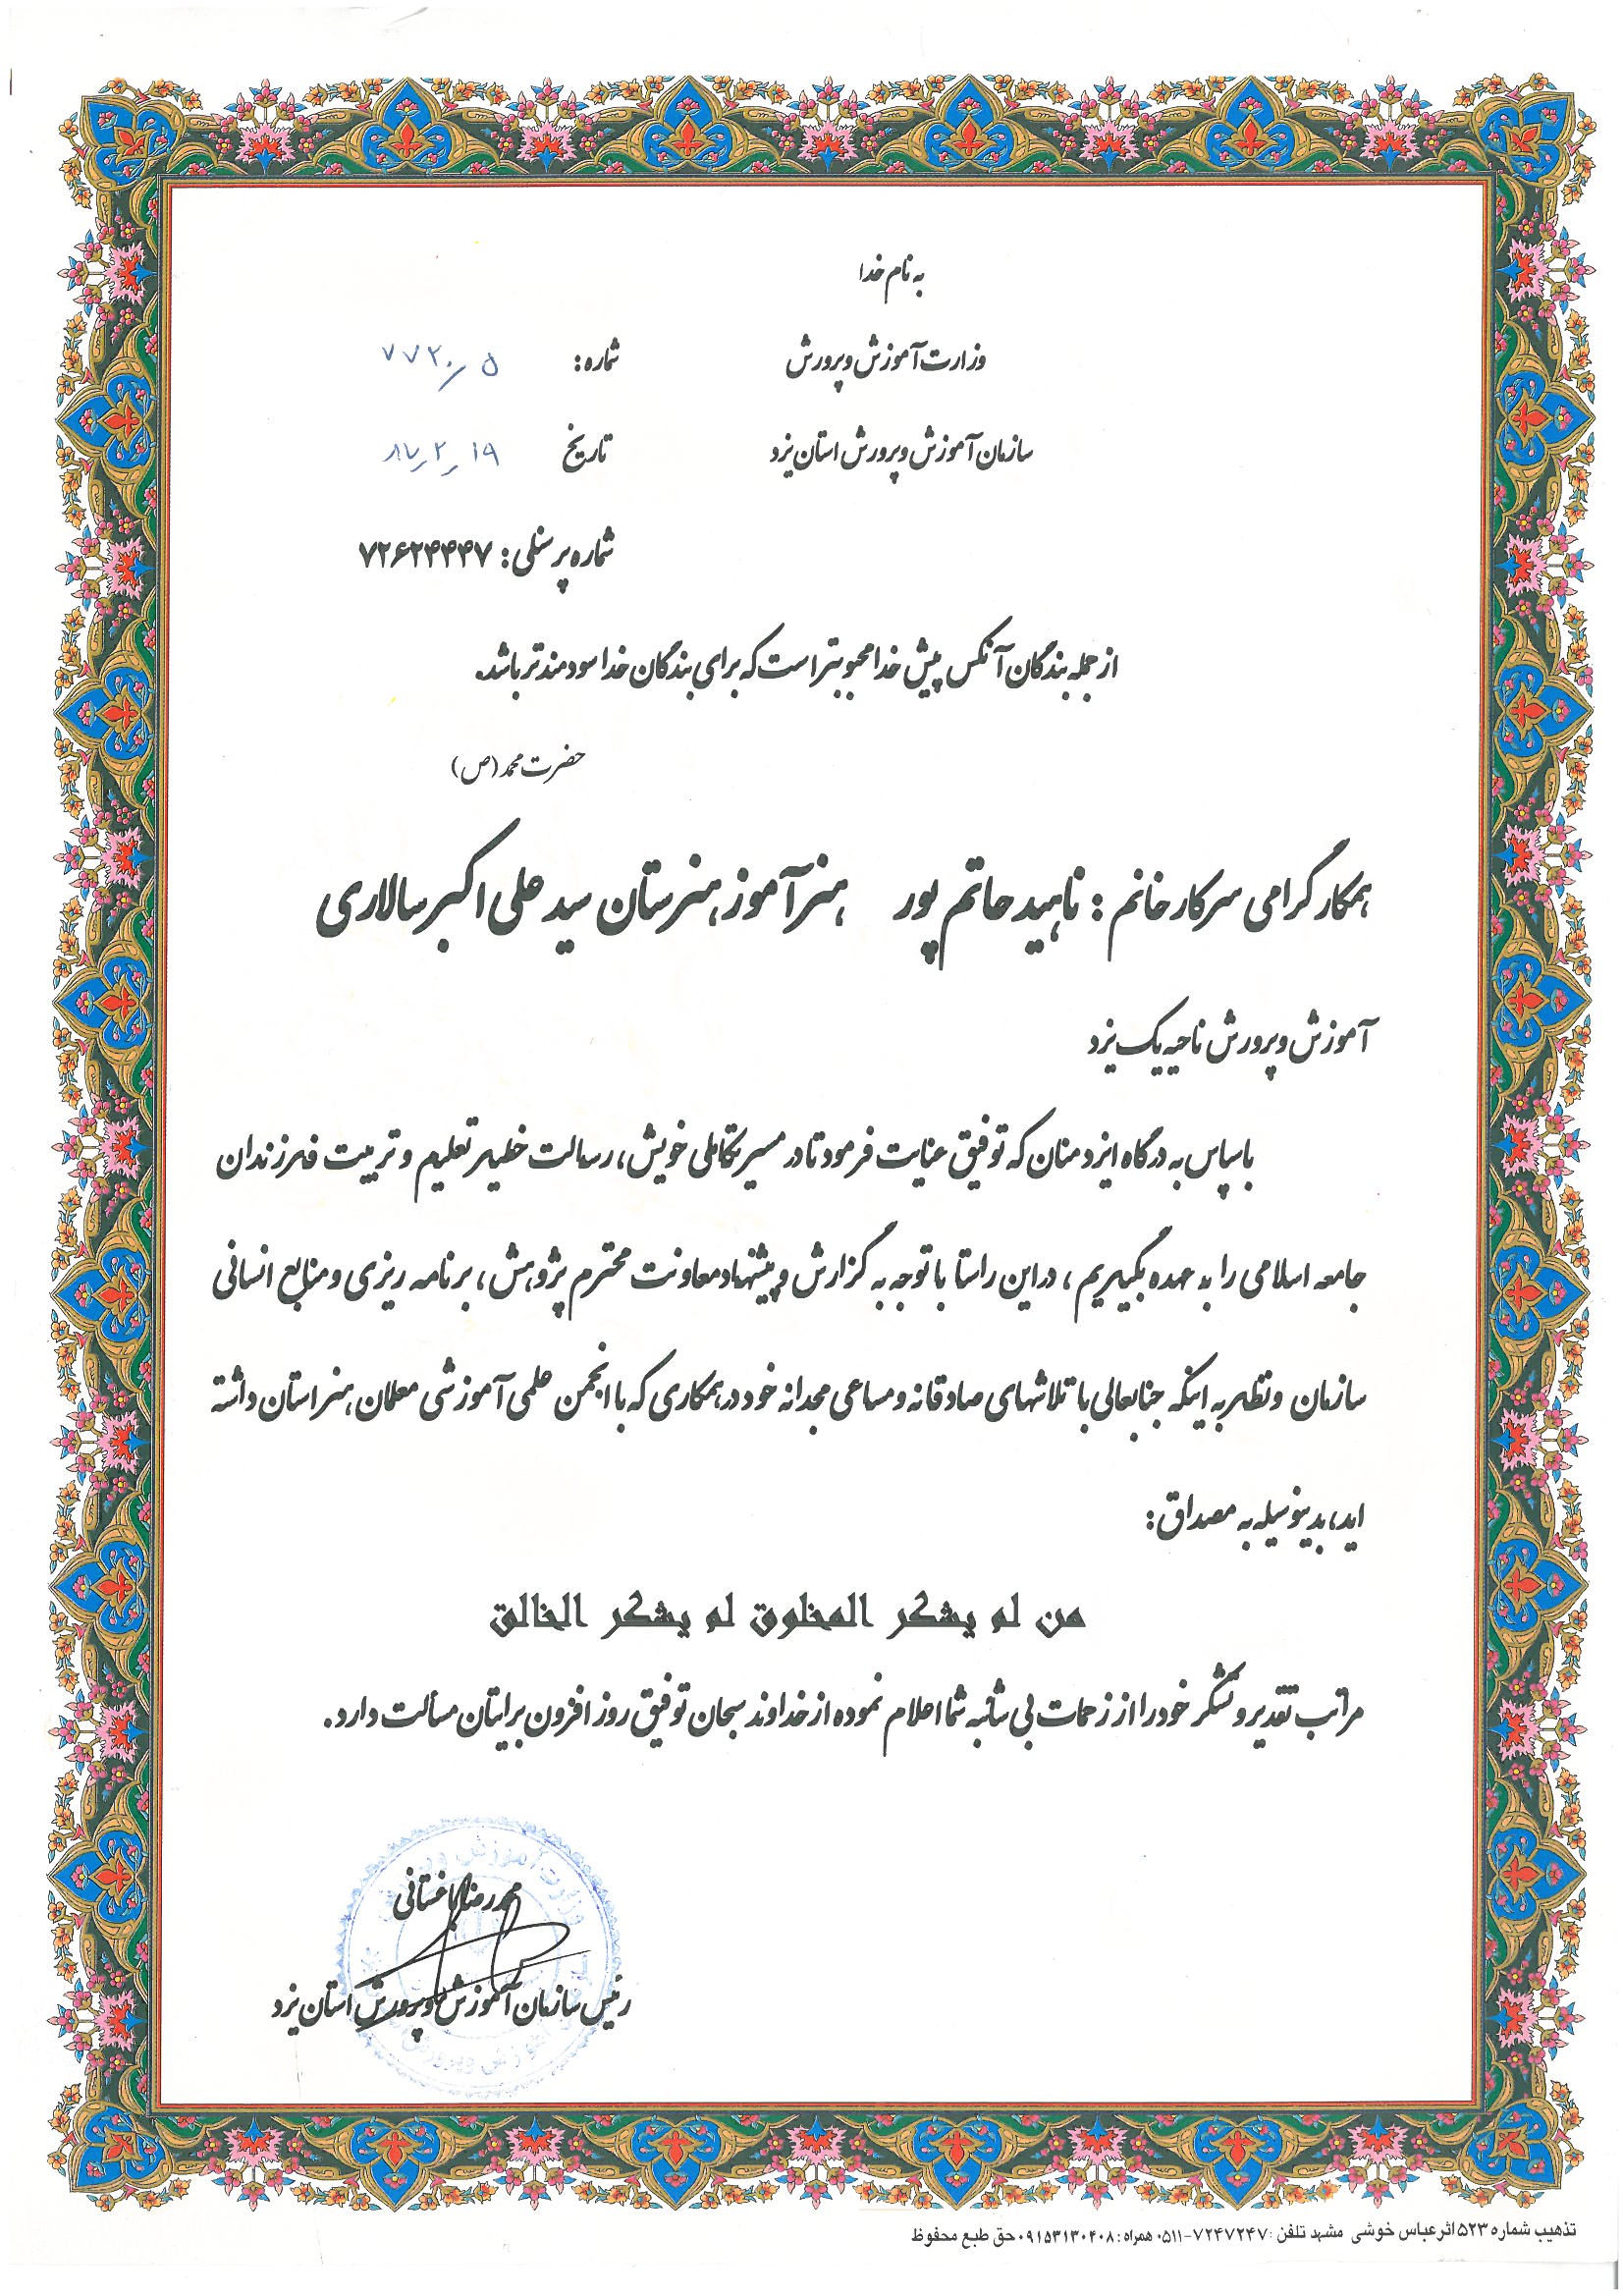 به نام خدا
وزارت آموزش و پرورش
شماره: ۷۷۲۰/۵
سازمان آموزش و پرورش استان یزد
تاریخ ۸۷/۲/۱۹
شماره پرسنلی: ۷۲۶۲۴۴۴۷
از جمله بندگان آنکس پیش خدا محبوبتر است که برای بندگان خدا سودمندتر باشد.
حضرت محمد (ص)
همکار گرامی سرکار خانم : ناهید حاتم پور هنرآموز هنرستان سید علی اکبر سالاری
آموزش و پرورش ناحیه یک یزد
با سپاس به درگاه ایزد منان که توفیق عنایت فرمود تا در مسیر تکاملی خویش، رسالت خطیر تعلیم و تربیت فرزندان
جامعه اسلامی را به عهده بگیریم ، در این راستا با توجه به گزارش و پیشنهاد معاونت محترم پژوهش ، برنامه ریزی و منابع انسانی
سازمان و نظر به اینکه جنابعالی با تلاشهای صادقانه و مساعی مجدانه خود در همکاری که با انجمن علمی آموزشی معلمان هنر استان داشته
اید، بدینوسیله به مصداق :
من لم یشکر المخلوق لم یشکر الخالق
مراتب تقدیر و تشکر خود را از زحمات بی شائبه شما اعلام نموده از خداوند سبحان توفیق روز افزون برایتان مسألت دارد.
محمدرضا باغستانی
رئیس سازمان آموزش و پرورش استان یزد
تذهیب شماره ۵۲۳ اثر عباس خوشی مشهد تلفن : ۷۲۴۷۲۴۷-۰۵۱۱ همراه : ۰۹۱۵۳۱۳۰۴۰۸ حق طبع محفوظ